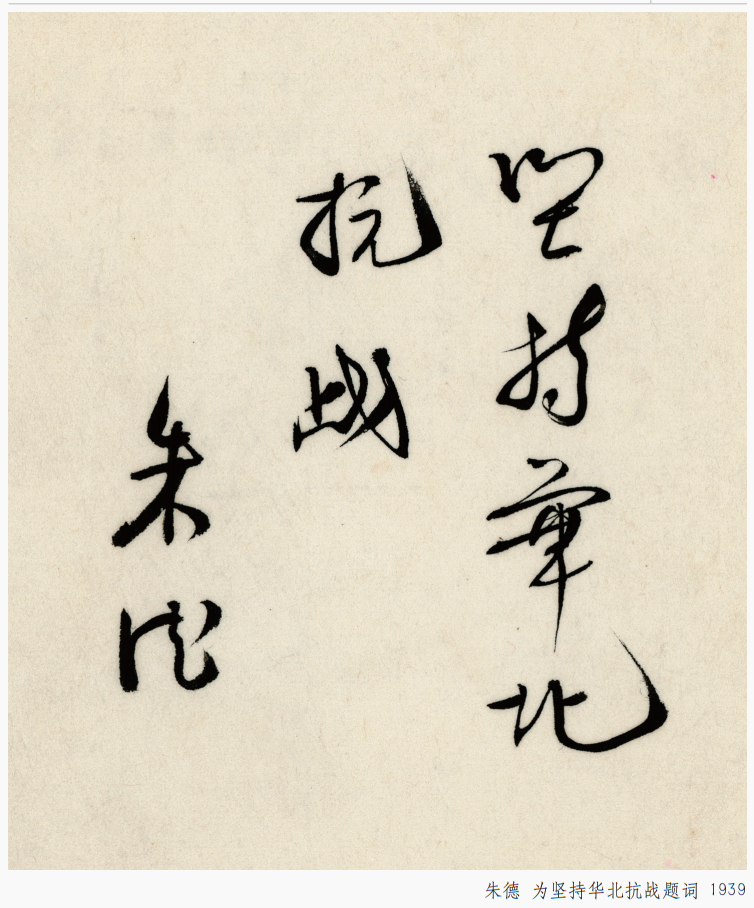 坚持华北
抗战
朱德
朱德 为坚持华北抗战题词 1939